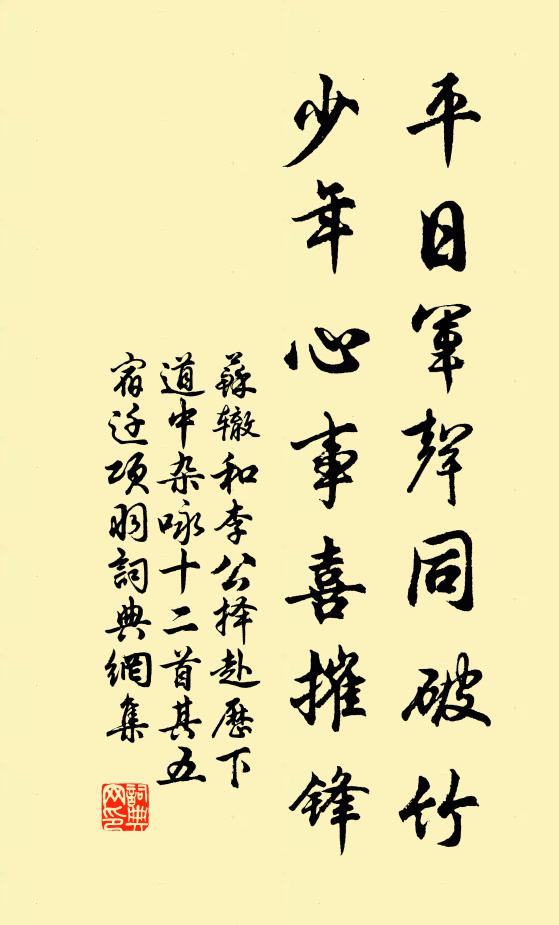 平日軍聲同破竹
少年心事喜摧锋
蘇辙和李公择赴歷下
道中杂咏十二首其五
宿迁项羽詞典網集
詞典
网印